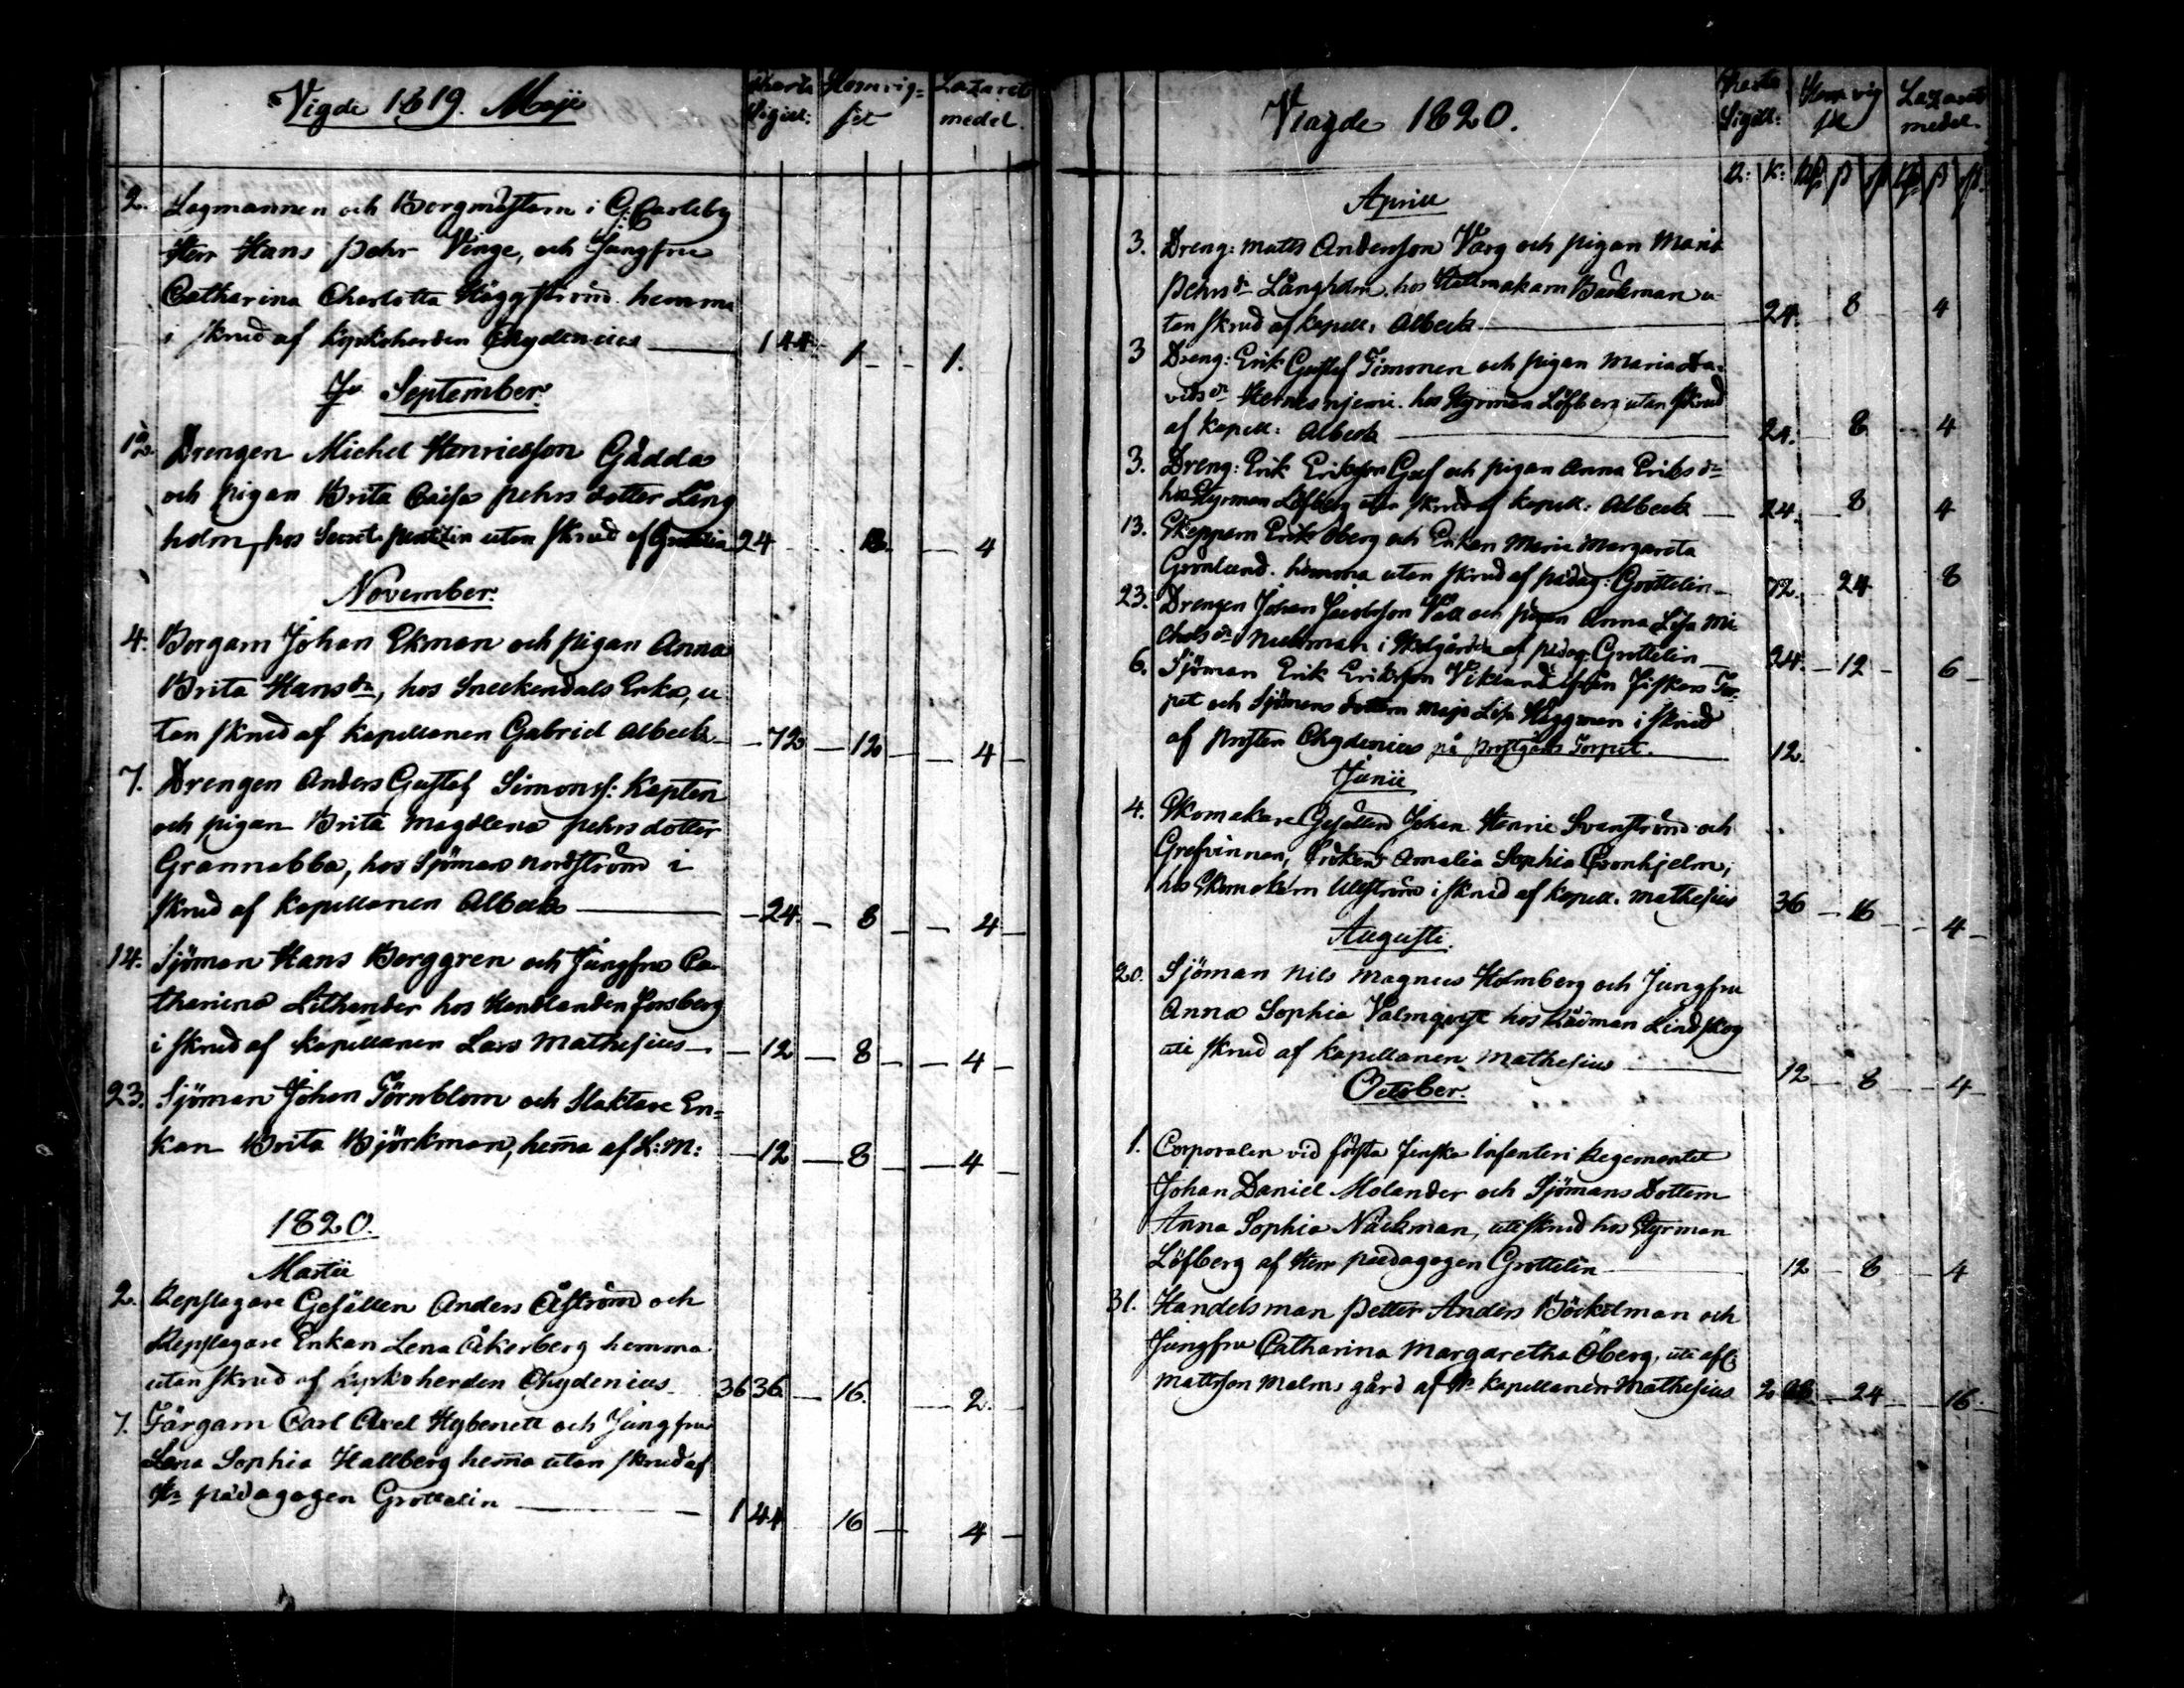 Vigde 1819. Maji
Charta Sigill: Hemvig= sel Lazarett medel.
2. Lagmannen och Borgmästarn i G: Carleby
Herr Hans Pehr Vinge, och Jungfru
Catharina Charlotta Häggström hemma
i skrud af kyrkoherden Chydenius 144 1 - - 1.
September.
12. Drengen Michel Henricsson Gädda
och pigan Brita Caisa pehrs dotter Lång
holm, hos utan skrud af 24 4
November.
4. Borgarn Johan Ekman och pigan Anna
Brita Hans dr, hos Sneckendals Enka, u
tan skrud af kapellanen Gabriel Albeck 72 12 4
7. Drengen Anders Gustaf Simonss: Kapten
och pigan Brita Magdlena pehrs dotter
Grannabba, hos Sjöman Nordström i
skrud af kapellanen Albeck 24 8 4
14. Sjöman Hans Borggren och Jungfru Ca
tharina Lithander hos Handlanden Forsberg
i skrud af kapellanen Lars Mathesius 12 8 4
23. Sjöman Johan Törnblom och Slaktare En=
kan Brita Björkman, hema af L: M: 12 8 4
1820.
Martii
2. Repslagare Gesällen Anders Åström och
Repslagare Enkan Lena Åkerberg hemma
utan skrud af kyrkoherden Chydenius 36 36 16. 2.
7. Färgarn Carl Axel Hybenett och Jungfru
Lena Sophia Hallberg hema utan skrud af
Hr pädagogen Grottelin 144 16 4
Viagde 1820.
Charta Sigill: Hem vig sel Lazarett medel.
R: K:
Aprill
3. Dreng: Matts Andersson Varg och pigan Maria
Pehrs dr Långholm, hos Hattmakarn Backman u
tan skrud af kapell: Albeck 24. 8 4
3 Dreng: Erik Gustaf Timonen och pigan Maria Da-
vids dr hos Styrman Löfberg utan skrud
af kapell: Albeck 24. 8 4
3. Dreng: Erik Eriksson Graf och pigan Anna Eriks dr
hos Styrman Löfberg utan skrud af kapell: Albeck 24. 8 4
13. Skeppare Erik Öberg och Enkan Maria Margareta
Grönlund. hemma utan skrud af pädag: Grottelin 72. 24 8
23. Drengen Johan Jacobsson Väll och pigan Anna Lisa Mi
chels dr i af pädag Grottelin 24. 12 6
6. Sjöman Erik Eriksson Viklund ifrån Fiskars Tor-
pet och Sjömans dottern Maja Lisa Häggman i skrud
af prosten Chydenius på prostgårds Torpet. 12.
Junii
4. Skomakare Gesällen Johan Henric Svanström och
Grefvinnan, Fröken Amalia Sophia Cronhjelm,
hos Skomakarn Ullström i skrud af kapell. Mathesius 36 16 4
Augusti.
20. Sjöman Nils Magnus Holmberg och Jungfru
Anna Sophia Valmqvist hos Rådman Lindskog
uti skrud af kapellanen Mathesius 12 8 4
October.
1. Corporalen vid första Finska Infanteri Regementet
Johan Daniel Molander och Sjömans Dottern
Anna Sophia Näckman, uti skrud hos Styrman
Löfberg af Herr pædagogen Grottelin 12 8 4
31. Handelsman Petter Anders Böckelman och
Jungfru Catharina Margaretha Öberg, uti
Mattsson Malms gård af Hr kapellanen Mathesius 24 16